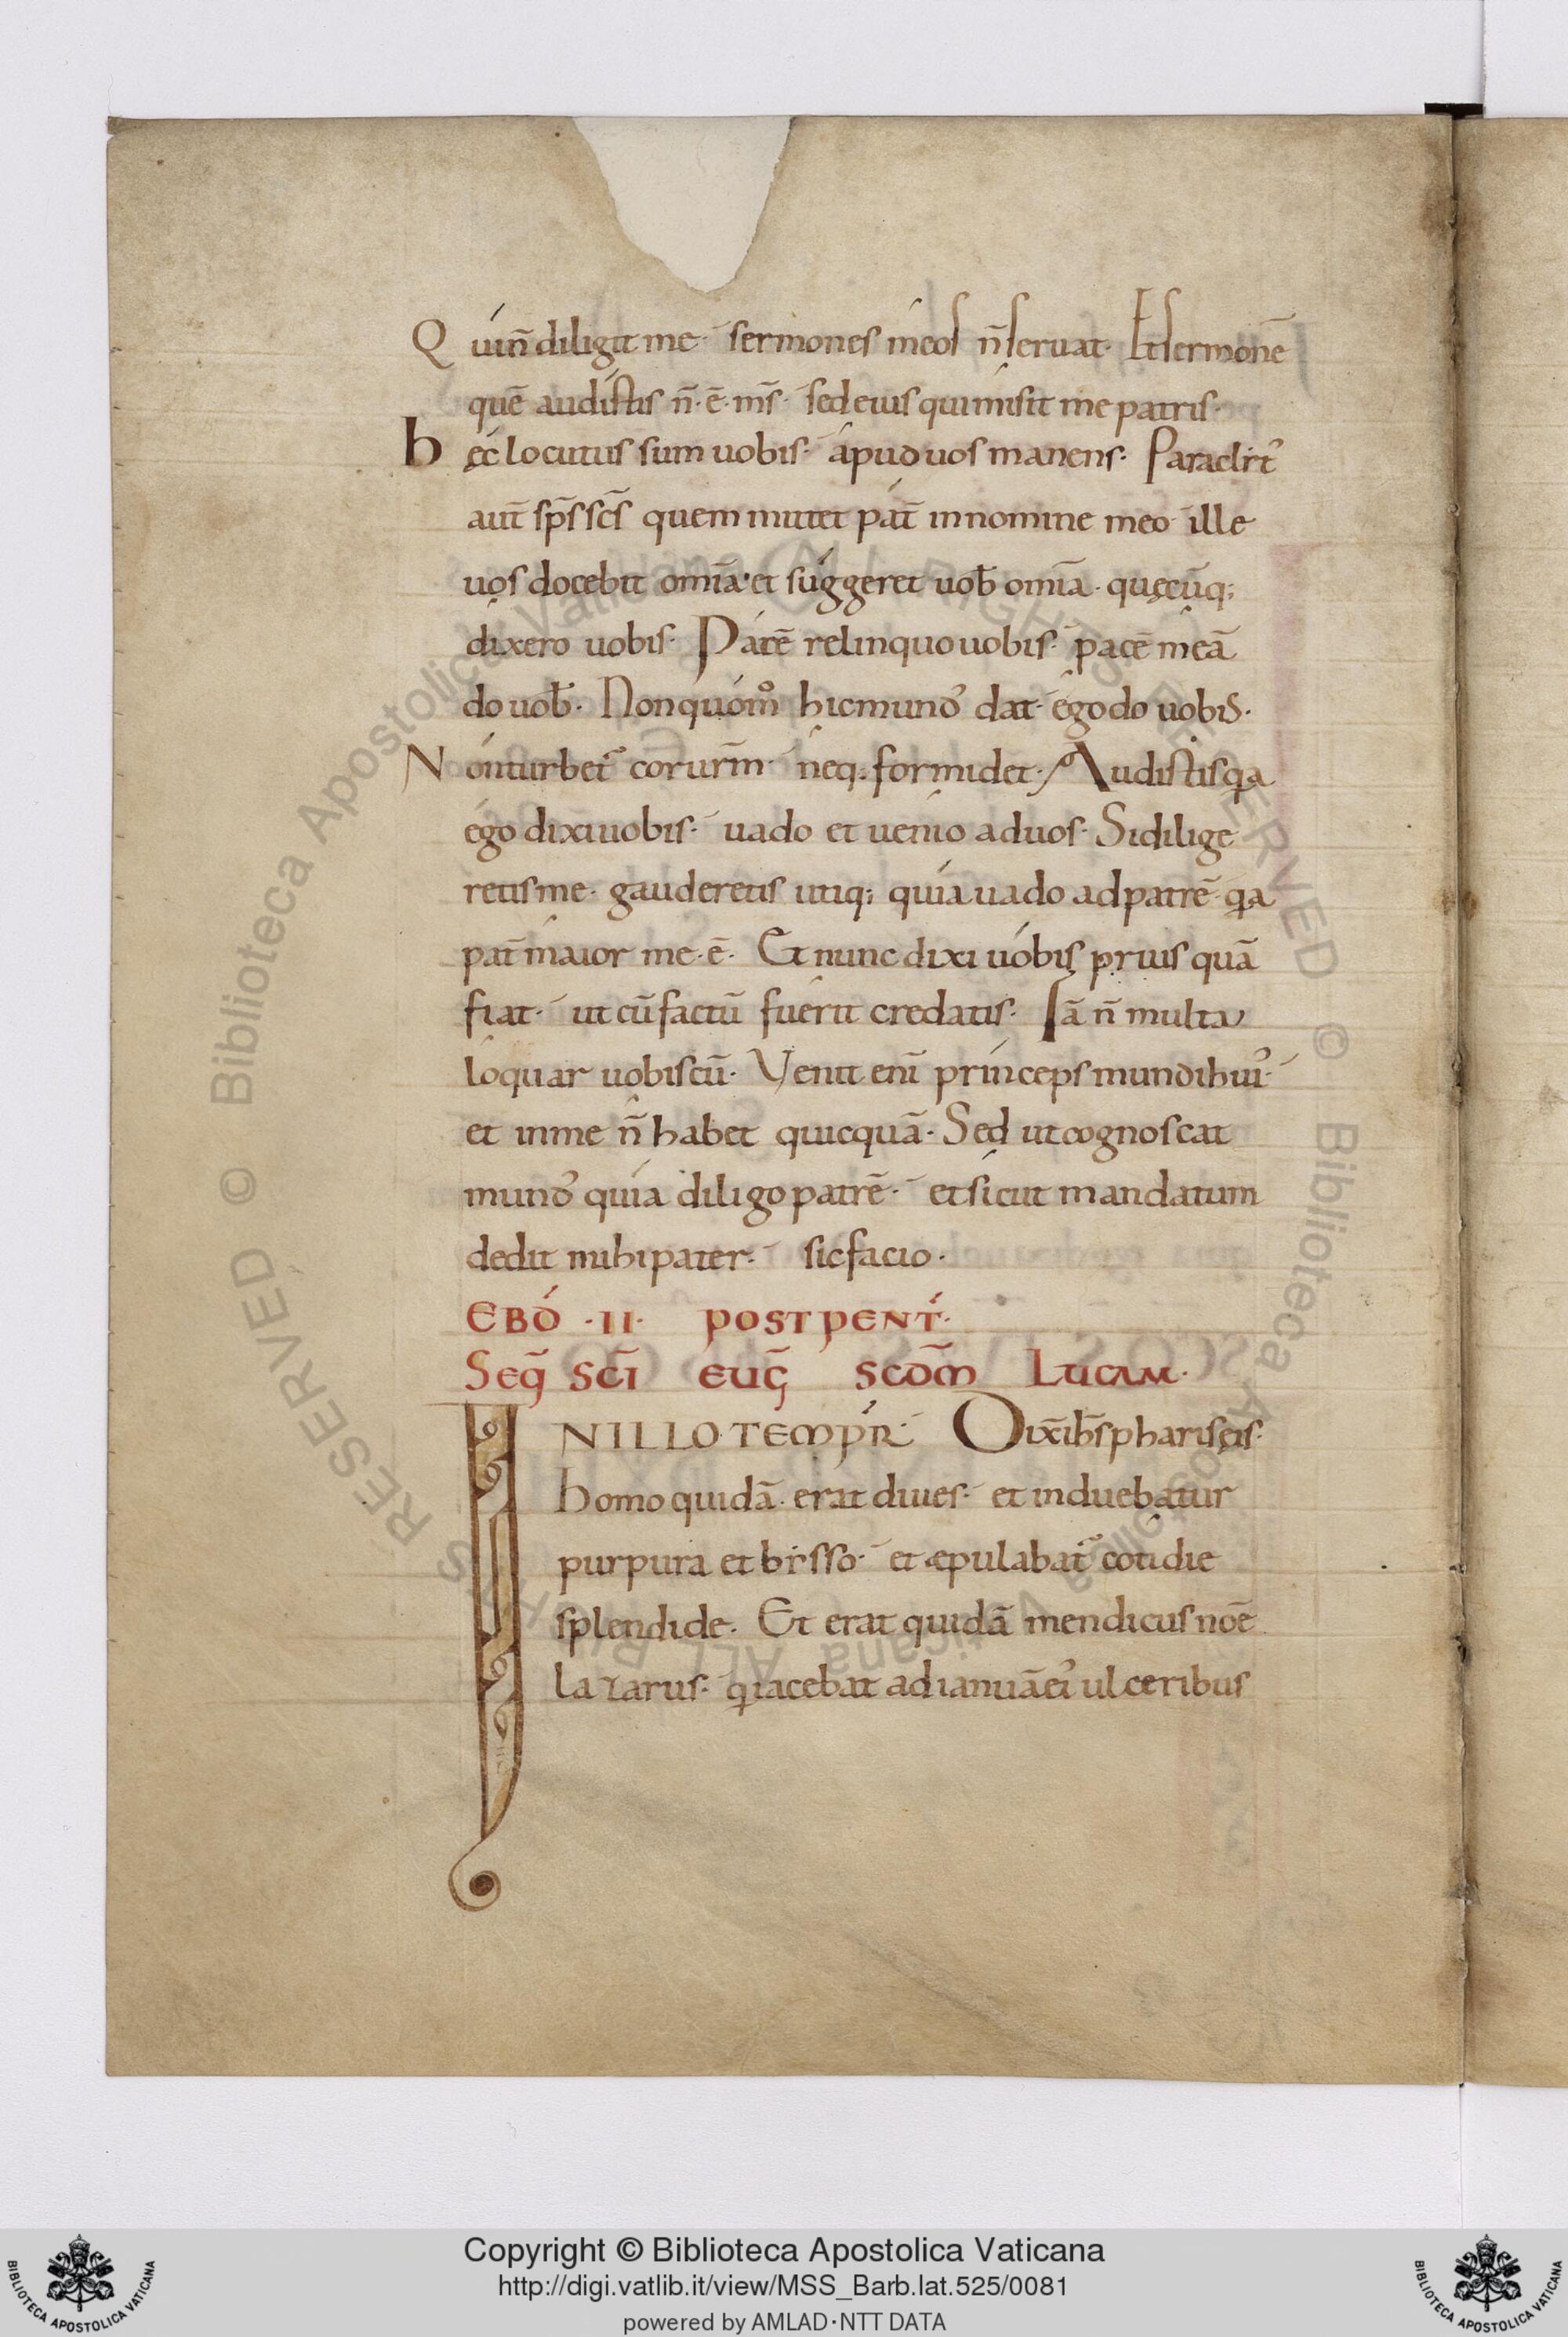 Qui n̄ diligit me · sermones meos n̄ seruat · Et sermonē
quē audistis n̄ · ē · m̄s · sed eius qui misit me patris ·
hęc locutus sum uobis · apud uos manens · Paraclit᾽
aut̄ sp̄s sc̄s quem mittet pat̄ in nomine meo ille
uos docebit om̄ia · et suggeret uob̄ om̄ia · quęcūq;
dixero uobis · Pacē relinquo uobis · pacē meā
do uob̄ · Non quom̊ hic mund᾽ dat · ego do uobis ·
Non turbet᷑ cor ur̄m · neq; formidet · Audistis qa
ego dixi uobis · uado et uenio ad uos · Si dilige
retis me · gauderetis utiq; quia uado ad patrē qa
pat̄ maior me · ē · Et nunc dixi uobis prius quā
fiat · ut cū factū fuerit credatis · Iā n̄ multa
loquar uobiscū · Venit enī princeps mundi hui᾽ ·
et in me n̄ habet quicquā · Sed ut cognoscat
mund᾽ quia diligo patrē · et sicut mandatum
dedit mihi pater · sic facio ·
EBD́ · II · POST PENT́ ·
Seq̄ SC̄I EUḠ SCD̄M LUCAM ·
IN ILLO TEMPR̄ Dix̄ ih̄s phariseis ·
homo quidā · erat diues · et induebatur
purpura et bisso · et æpulabat᷑ cotidie
splendide · Et erat quidā mendicus noē
lazarus · qi iacebat ad ianuā ei᾽ ulceribus
Copyright © Biblioteca Apostolica Vaticana
http://digi.vatlib.it/view/MSS_Barb.lat.525/0081
powered by AMLAD·NTT DATA
BIBLIOTECA APOSTOLICA VATICANA
BIBLIOTECA APOSTOLICA VATICANA
© Biblioteca Apostolica Vaticana ALL RIGHTS RESERVED © Biblioteca Apostolica Vaticana ALL RIGHTS RESERVED